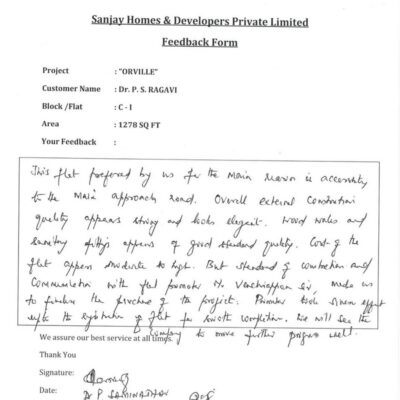 Sanjay Homes & Developers Private Limited
Feedback Form
Project : "ORVILLE"
Customer Name : Dr. P. S. RAGAVI
Block /Flat : C - I
Area : 1278 SQ FT
Your Feedback :
This flat preferred by us for the main reason is accessibility
to the main approach road. Overall external construction
quality appears strong and looks elegant. Wood works and
sanitary fittings appears of good standard quality. Cost of the
flat appears moderate to high. But standard of construction and
communication with flat promoter Mr. made us
to finalise the purchase of the project. Promoter took
the registration of flat for smooth completion. We will see the
company to move further progress well.
We assure our best service at all times.
Thank You
Signature:
Date: Dr P